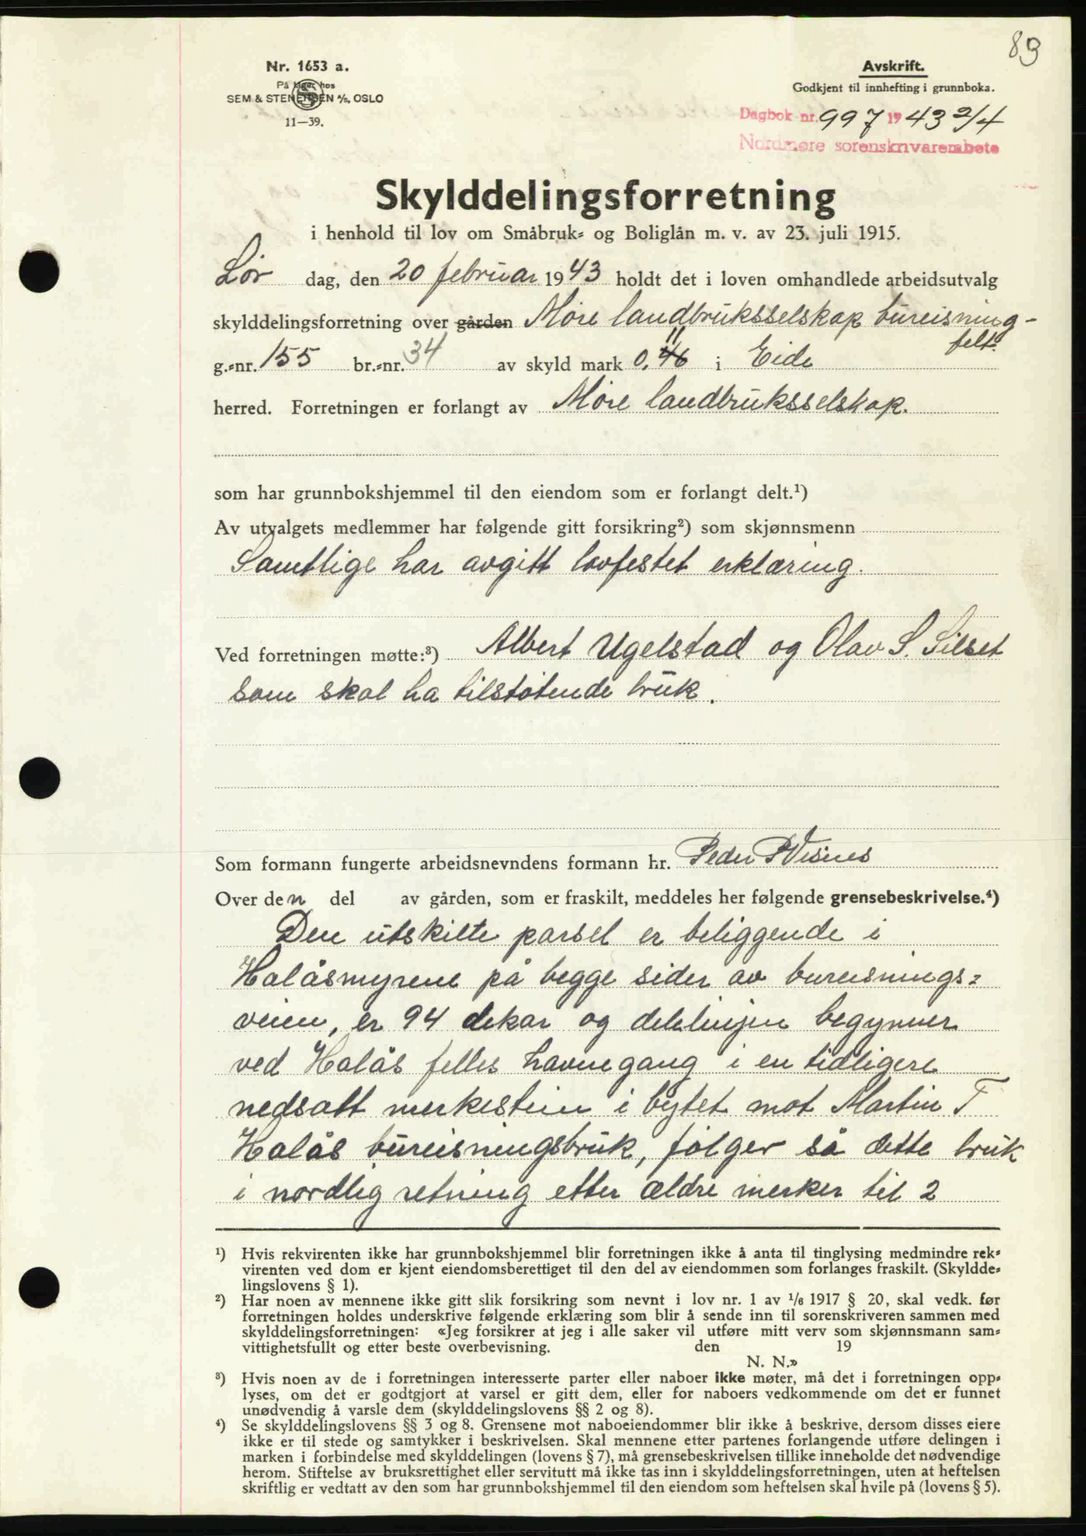 89
Nr. 1653 a.
På lager hos
SEM & STENERSEN A/S, OSLO
11—39.
Avskrift.
Godkjent til innhefting i grunnboka.
Dagbok nr. 997 1943 2/4
Nordmøre sorenskriverembete
Skylddelingsforretning
i henhold til lov om Småbruk- og Boliglån m. v. av 23. juli 1915.
Lør dag, den 20 februar 1943 holdt det i loven omhandlede arbeidsutvalg
skylddelingsforretning over gården Møre landbruksselskap bureisning-
felt.
g.-nr. 155 br.-nr. 34 av skyld mark 0,46 11 i Eide
herred. Forretningen er forlangt av Møre landbruksselskap.
som har grunnbokshjemmel til den eiendom som er forlangt delt.¹)
Av utvalgets medlemmer har følgende gitt forsikring²) som skjønnsmenn
Samtlige har avgitt lovfestet erklæring.
Ved forretningen møtte:³) Albert Ugelstad og Olav S. Silset
som skal ha tilstøtende bruk.
Som formann fungerte arbeidsnevndens formann hr. Peder P Visnes
Over den del av gården, som er fraskilt, meddeles her følgende grensebeskrivelse.⁴)
Den utskilte parsel er beliggende i
Halåsmyrene på begge sider av bureisnings-
veien, er 94 dekar og delelinjen begynner
ved Halås felles havnegang i en tidligere
nedsatt merkestein i bytet mot Martin T
Halås bureisningsbruk, følger så dette bruk
i nordlig retning etter ældre merker til 2
¹) Hvis rekvirenten ikke har grunnbokshjemmel blir forretningen ikke å anta til tinglysing medmindre rek-
virenten ved dom er kjent eiendomsberettiget til den del av eiendommen som forlanges fraskilt. (Skyldde-
lingslovens § 1).
²) Har noen av mennene ikke gitt slik forsikring som nevnt i lov nr. 1 av 1/6 1917 § 20, skal vedk. før
forretningen holdes underskrive følgende erklæring som blir å sende inn til sorenskriveren sammen med
skylddelingsforretningen: «Jeg forsikrer at jeg i alle saker vil utføre mitt verv som skjønnsmann sam-
vittighetsfullt og etter beste overbevisning. den 19
N. N.»
³) Hvis noen av de i forretningen interesserte parter eller naboer ikke møter, må det i forretningen opp-
lyses, om det er godtgjort at varsel er gitt dem, eller for naboers vedkommende om det er funnet
unødvendig å varsle dem (skylddelingslovens §§ 2 og 8).
⁴) Se skylddelingslovens §§ 3 og 8. Grensene mot naboeiendommer blir ikke å beskrive, dersom disses eiere
ikke er til stede og samtykker i beskrivelsen. Skal mennene etter partenes forlangende utføre delingen i
marken i forbindelse med skylddelingen (lovens § 7), må grensebeskrivelsen tillike inneholde det nødvendige
herom. Stiftelse av bruksrettighet eller servitutt må ikke tas inn i skylddelingsforretningen, uten at heftelsen
skriftlig er vedtatt av den som har grunnbokshjemmel til den eiendom som heftelsen skal hvile på (lovens § 5).